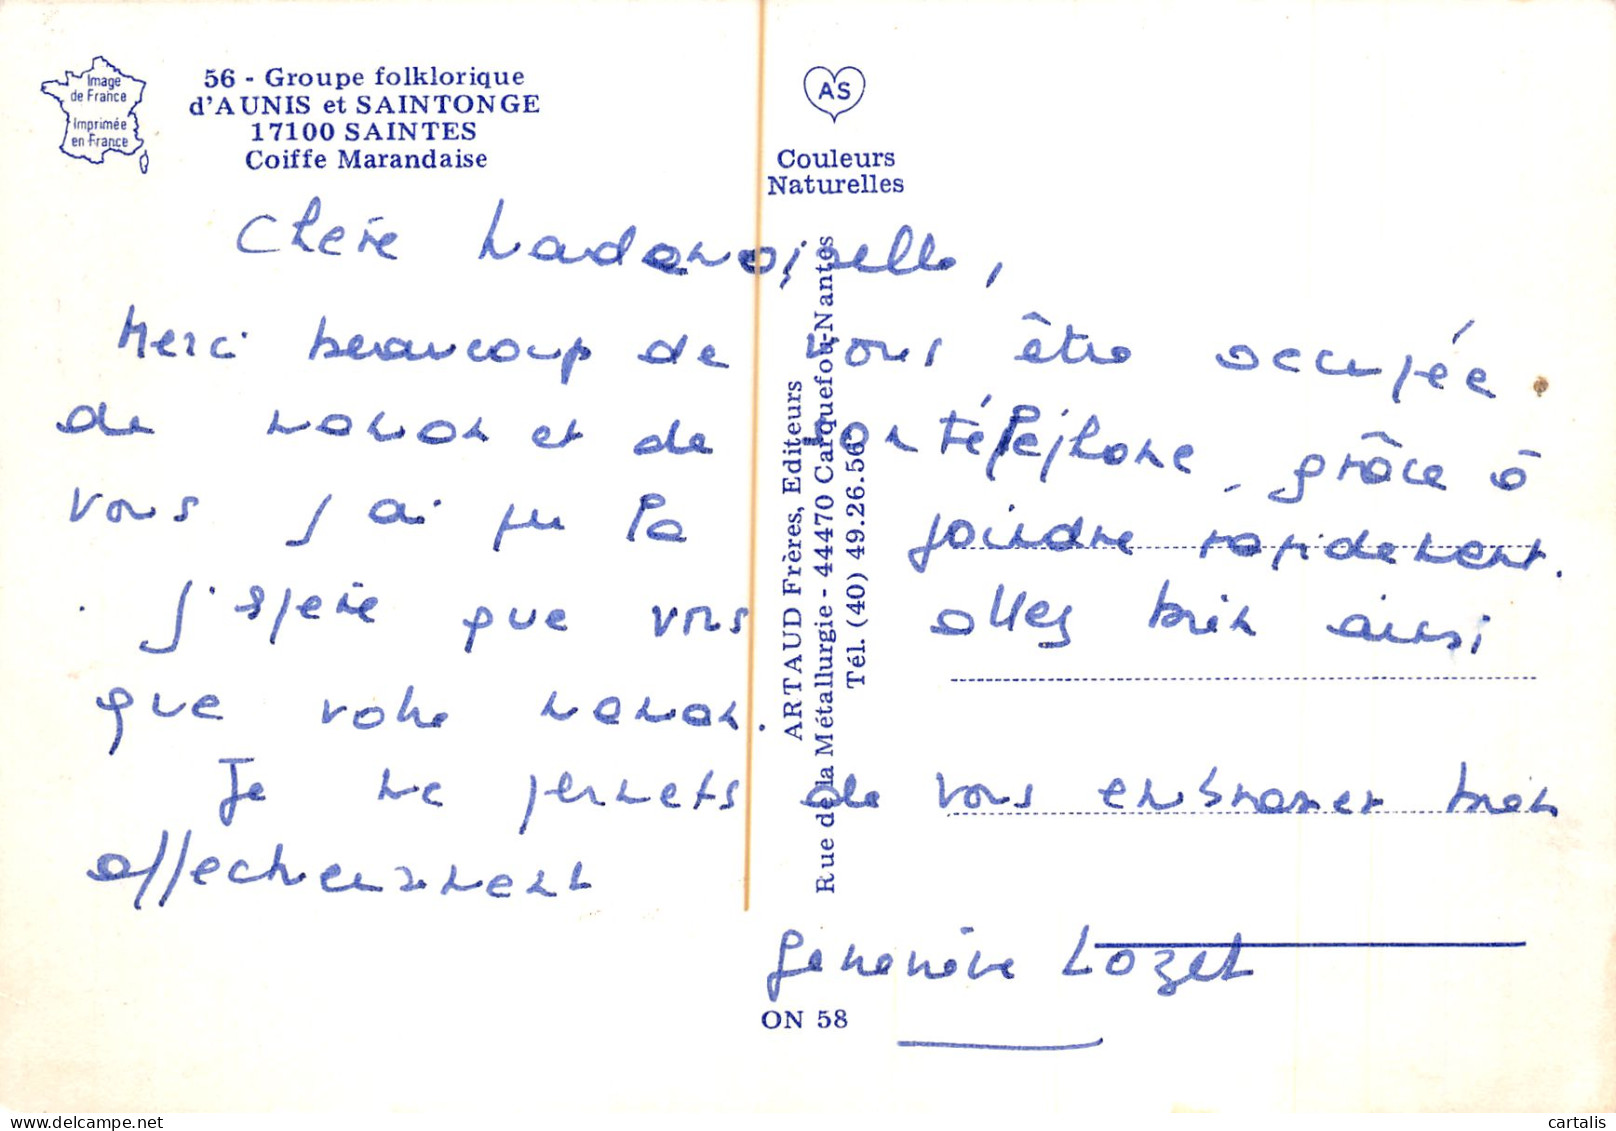 Image
de France
Imprimée
en France
56 - Groupe folklorique
d'AUNIS et SAINTONGE
17100 SAINTES
Coiffe Marandaise
AS
Couleurs
Naturelles
Chère Mademoiselle,
Merci beaucoup de vous être occupée
de maman et de son téléphone, grâce à
vous j'ai pu la joindre rapidement.
J'espère que vous allez bien ainsi
que votre maman.
Je me permets de vous embrasser bien
affectueusement
Geneviève Lozet
ARTAUD Frères, Editeurs
Rue de la Métallurgie - 44470 Carquefou-Nantes
Tél. (40) 49.26.56
ON 58
cartalis